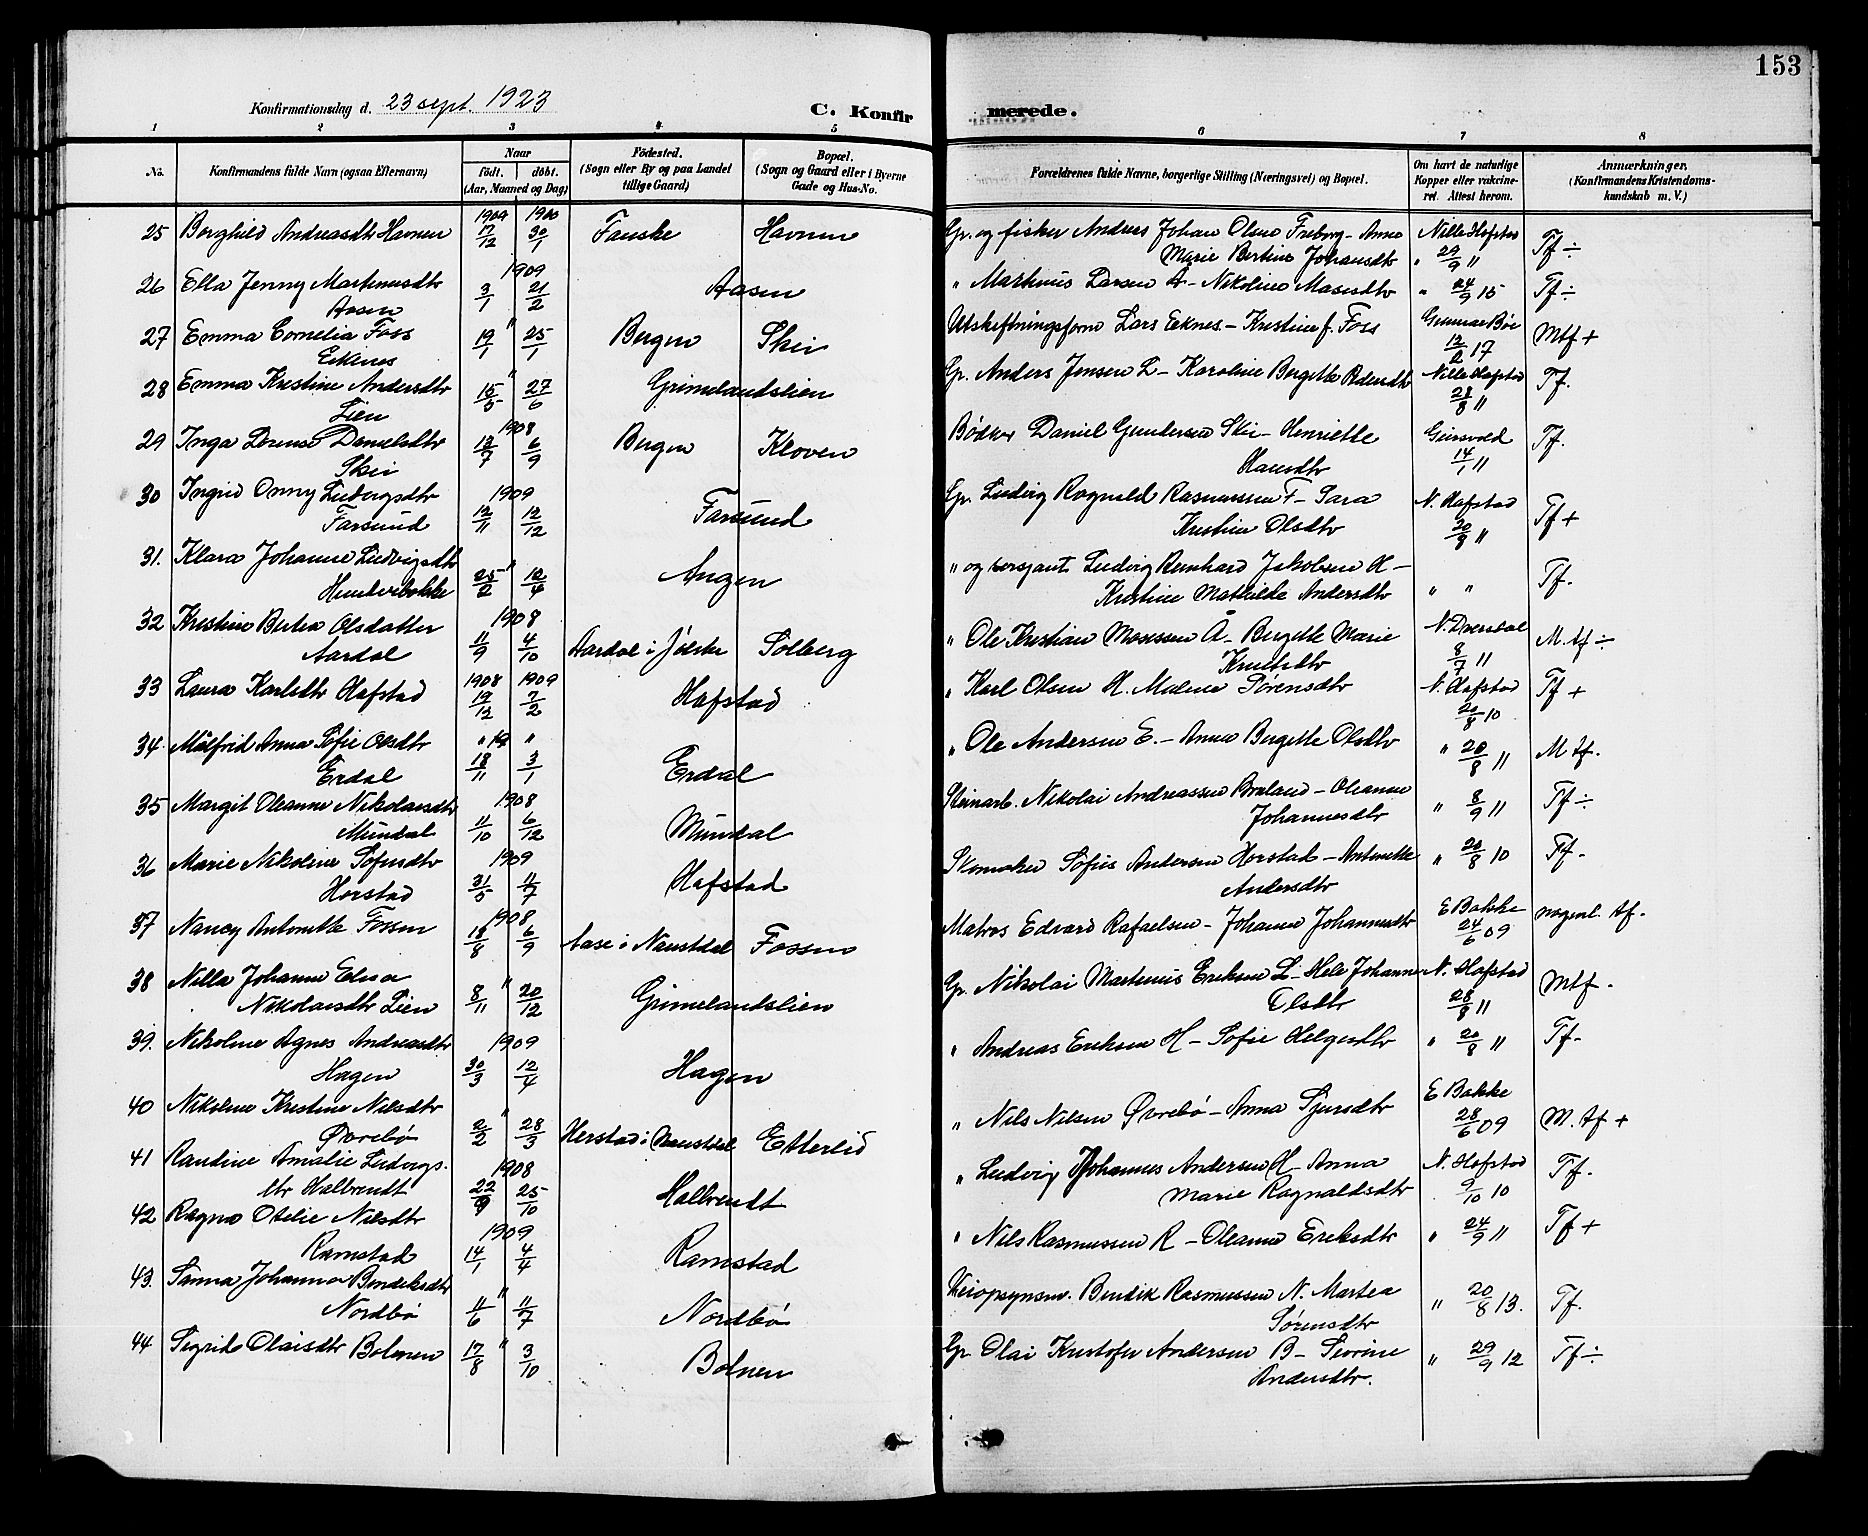 153
Konfirmationsdag d. 23 sept. 1923
C. Konfirmerede.
1 2 3 4 5 6 7 8
No.
Konfirmandens fulde Navn (ogsaa Efternavn)
Naar
født. døbt.
(Aar, Maaned og Dag)
Fødested.
(Sogn eller By og paa Landet
tillige Gaard)
Bopæl.
(Sogn og Gaard eller i Byerne
Gade og Hus-No.
Forældrenes fulde Navne, borgerlige Stilling (Næringsvei) og Bopæl.
Om havt de naturlige
Kopper eller vakcine-
ret. Attest herom.
Anmærkninger,
(Konfirmandens Kristendoms-
kundskab m. V.)
1909 1910
25 Borghild Andreasdtr Havnen 17/12 30/1 Fauske Havnen Gr. og fisker Andreas Johan Olsen Freborg - Anna Nille Hafstad Tf ÷
Marie Bertine Johansdtr " 29/9 11
1909
26 Ella Jenny Markusdtr 3/1 21/2 Aasen " Markus Larsen A - Nikoline Mosesdtr " 24/9 15 Tf ÷
Aasen
27 Emma Cornelia Foss 19/1 " 25/1 Bergen Skei Utskiftningsform Lars Eknes - Kristine f. Foss Gunnar Bøe Mtf +
Eknes 12/2 17
28 Emma Kristine Andersdtr 15/5 " 27/6 Grimelandslien Gr. Anders Jensen L - Karoline Bergitte Pedersdtr Nille Hafstad Tf.
Lien 28/8 11
1908
29 Inga Lorense Danielsdtr 13/7 6/9 Bergen Kloven Bødker Daniel Gundersen Skei - Henriette Geirsvold Tf.
Skei Hansdtr 14/1 11
1909
30 Ingrid Onny Ludvigsdtr 12/11 12/12 Farsund Gr. Ludvig Ragnald Rasmussen F - Sara N. Hafstad Tf +
Farsund Kristine Olsdtr 20/8 11
31. Klara Johanne Ludvigsdtr 25/2 " 12/4 Angen " og sersjant Ludvig Reinhard Jakobsen H - Tf.
Hundvebakke Kristine Mathilde Andersdtr " "
1908
32 Kristine Bertea Olsdatter 11/9 4/10 Aardal i Jølster Solberg " Ole Kristian Mosessen Å - Bergitte Marie N. Dvergsdal M. tf ÷
Aardal Knutsdtr 8/7 11
1908 1909
33 Laura Karlsdtr Hafstad 19/12 7/2 Hafstad " Karl Olsen H. Malene Sørensdtr N. Hafstad Tf +
20/8 10
34 Målfrid Anna Sofie Olsdtr 18/11 3/1 Erdal " Ole Andersen E. - Anna Bergitte Olsdtr " 20/8 11 M tf.
Erdal
1908
35 Margit Oleanne Nikolaisdtr 11/10 6/12 Mundal Steinarb. Nikolai Andreassen Braland - Oleanne " 8/9 11 Tf ÷
Mundal Johannesdtr
1909
36 Marie Nikoline Sofusdtr 31/5 11/7 Hafstad Skomaker Sofus Andersen Horstad - Antonette " 20/8 10 Tf.
Horstad Andersdtr
1908
37 Nancy Antonette Fossen 18/8 6/9 Aase i Naustdal Fossen Matros Edvard Rafaelsen - Johanne Johannesdtr E Bakke 24/6 09 nogenl. tf.
38 Nilla Johanne Elisa 8/11 " 20/12 Grimelandslien Gr. Nikolai Martinus Eriksen L - Hele Johanne N. Hafstad Mtf.
Nikolaisdtr Lien Olsdtr 28/8 11
1909
39. Nikoline Agnes Andreasdtr 30/3 12/4 Hagen " Andreas Eriksen H - Sofie Helgesdtr " 20/8 11 Tf.
Hagen
40 Nikoline Kristine Nilsdtr 2/2 " 28/3 Herstad i Naustdal Espelid " Nils Nilsen Øvrebø - Anna Sjursdtr E Bakke 28/6 09 M. tf +
Øvrebø
1908
41 Randine Amalie Ludvigs. 22/9 25/10 Halbrendt " Ludvig Johannes Andersen H - Anna N. Hafstad Tf.
dtr Halbrendt Marie Ragnaldsdtr 9/10 10
1909
42 Ragna Otelie Nilsdtr 14/1 4/4 Ramstad " Nils Rasmussen R - Oleanna Eriksdtr " 24/9 11 Tf +
Ramstad
43. Sanna Johanna Bendiksdtr 11/6 " 11/7 Nordbø Veiopsynsm. Bendik Rasmussen N. Martea " 20/8 13. Tf.
Nordbø Sørensdtr
44 Sigrid Olaisdtr Bolmen 17/8 " 3/10 Bolmen Gr Olai Kristofer Andersen B - Severine " 29/9 12 Tf ÷
Andersdtr.